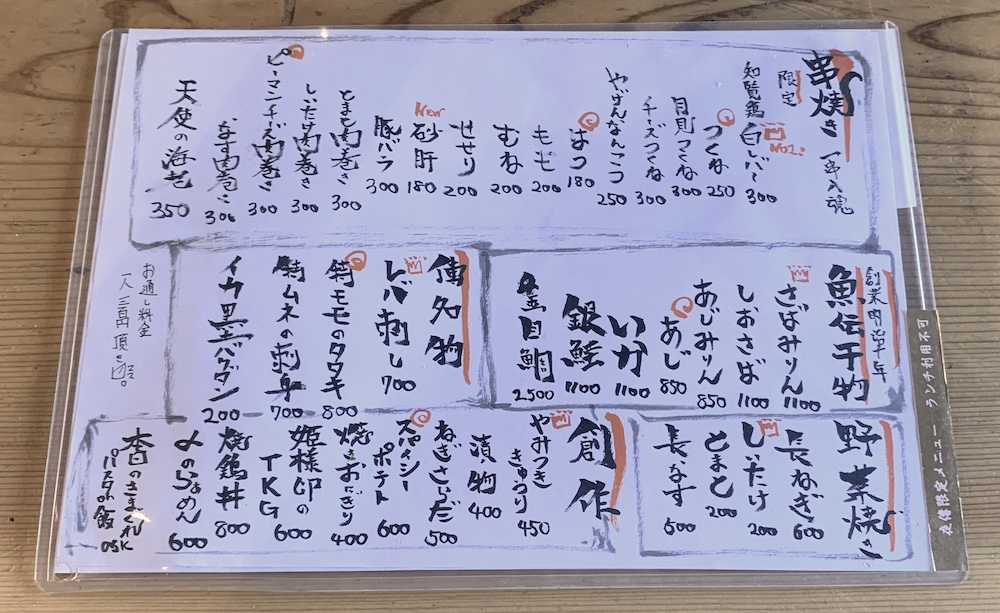 串焼き 一串入魂
限定
知覧鶏 白レバー 300
No1.
つくね 250
月見つくね 300
チーズつくね 300
やげんなんこつ 250
はつ 180
もも 200
むね 200
せせり 200
New
砂肝 180
豚バラ 300
とまと肉巻き 300
しいたけ肉巻き 300
ピーマンチーズ肉巻き 300
なす肉巻き 300
天使の海老 350
創業明治卅年
魚伝干物
さばみりん 1100
しおさば 1100
あじみりん 850
あじ 850
いか 1100
銀鮭 1100
金目鯛 2500
傳名物
レバ刺し 700
鶏モモのタタキ 800
鶏ムネの刺身 700
イカ墨バクダン 200
お通し料金
一人 三百円 頂きます。
野菜焼き
長ねぎ 600
しいたけ 200
とまと 200
長なす 500
創作
やみつききゅうり 450
漬物 400
ねぎさらだ 500
スパイシーポテト 600
焼きおにぎり 400
姫様卵のTKG
焼鶏丼 800
〆のらぁめん 600
本日のきまぐれ
パスタor飯 ask
夜価限定メニュー ランチ利用不可